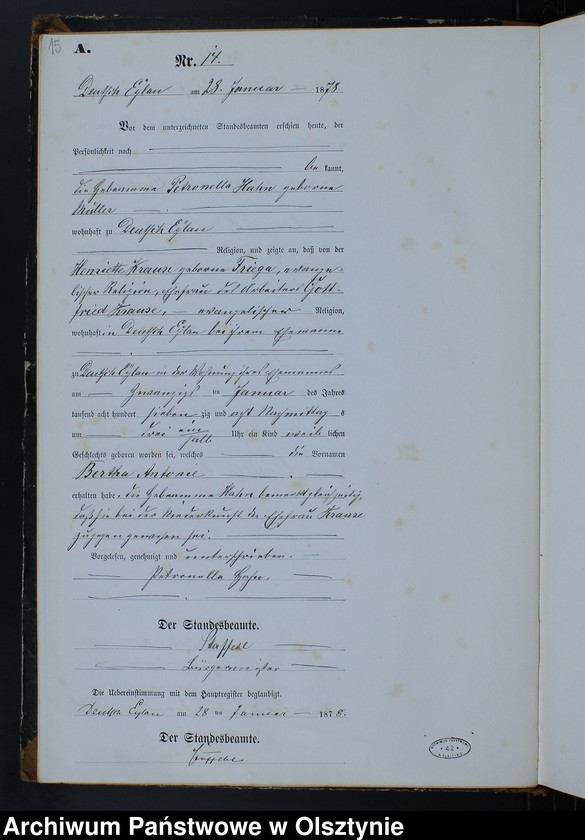 15
A.
Nr. 14.
Deutsch Eylau am 28. Januar 1878.
Vor dem unterzeichneten Standesbeamten erschien heute, der
Persönlichkeit nach
be kannt,
die Hebeamme Petronella Hahn geborne
Müller
wohnhaft zu Deutsch Eylau
Religion, und zeigte an, daß von der
Henriette Krause geborne Friega, evange-
lischer Religion, Ehefrau des Arbeiters Gott-
fried Krause, evangelischer Religion,
wohnhaft in Deutsch Eylau bei ihrem Ehemanne
zu Deutsch Eylau in der Wohnung ihres Ehemannes
am Januar des Jahres
tausend acht hundert sieben zig und acht Nachmittag s
um drei ein halb Uhr ein Kind weib lichen
Geschlechts geboren worden sei, welches die Vornamen
Bertha Antonie
erhalten habe. die Hebeamme Hahn bemerkt gleichzeitig,
daß sie bei der Niederkunft der Ehefrau Krause
zugegen gewesen sei.
Vorgelesen, genehmigt und unterschrieben.
Petronella Hahn.
Der Standesbeamte.
Staffehl
Bürgermeister
Die Uebereinstimmung mit dem Hauptregister beglaubigt.
Deutsch Eylau am 28 ten Januar 1878.
Der Standesbeamte.
Staffehl
42
Archiwum Państwowe w Olsztynie